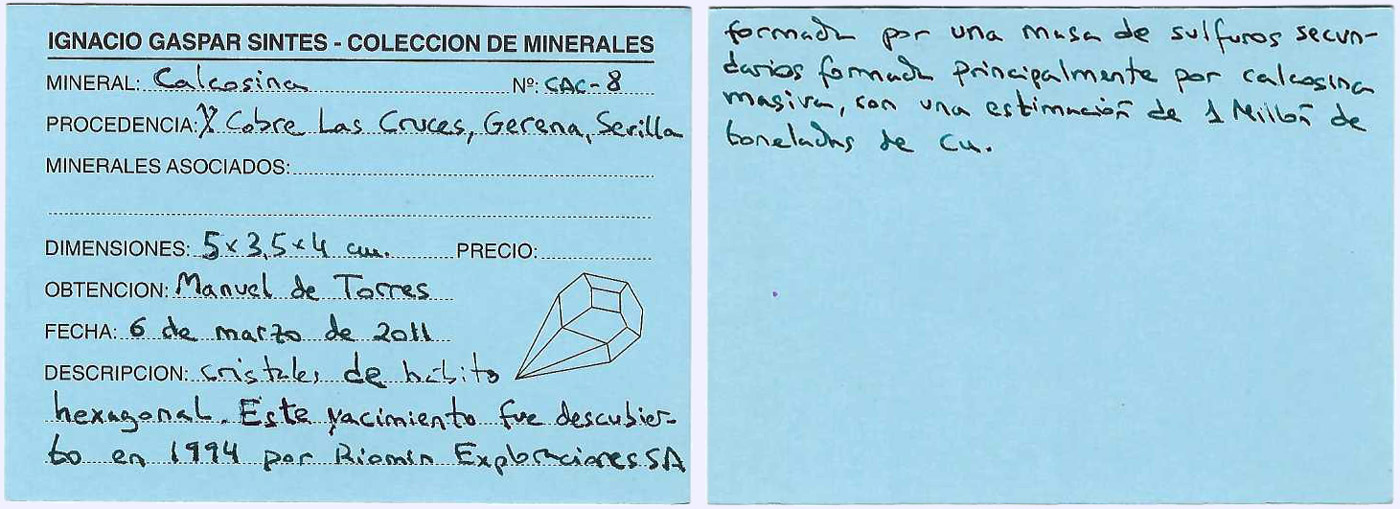 IGNACIO GASPAR SINTES - COLECCION DE MINERALES
MINERAL: Calcosina Nº: CAC-8
PROCEDENCIA: X Cobre Las Cruces, Gerena, Sevilla
MINERALES ASOCIADOS:
DIMENSIONES: 5x3,5x4 cm. PRECIO:
OBTENCION: Manuel de Torres
FECHA: 6 de marzo de 2011
DESCRIPCION: cristales de hábito
hexagonal. Este yacimiento fue descubier-
to en 1994 por Riomin Exploraciones SA
formada por una masa de sulfuros secun-
darios formada principalmente por calcosina
masiva, con una estimación de 1 Millón de
toneladas de Cu.